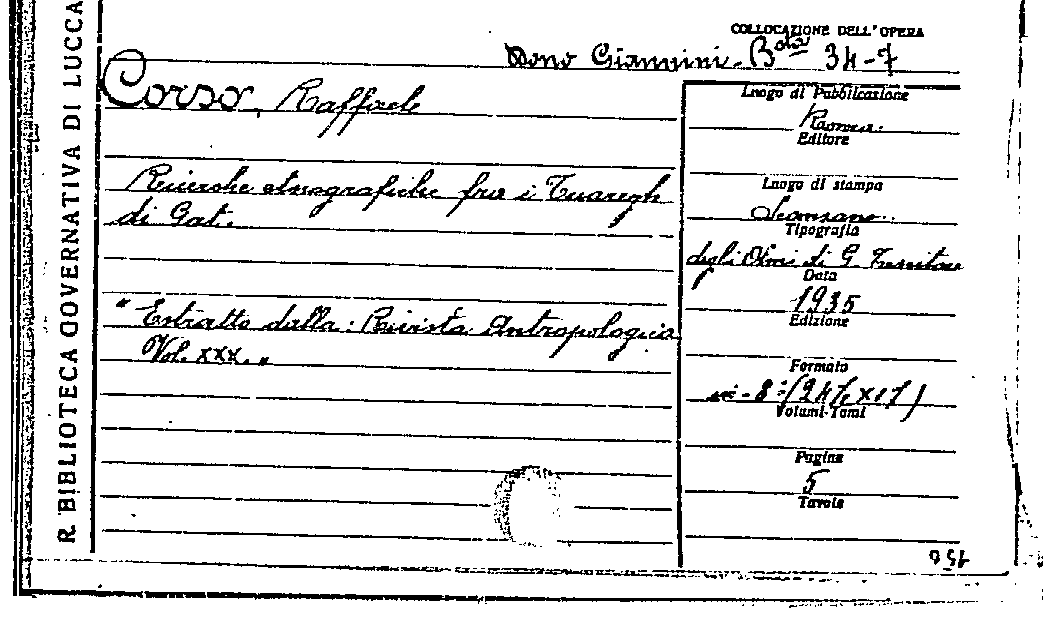 R. BIBLIOTECA GOVERNATIVA DI LUCCA
COLLOCAZIONE DELL'OPERA
Dono Giannini - Bta 34-7
Corso, Raffaele
Ricerche etnografiche fra i Tuaregh
di Gat.
"Estratto dalla: Rivista Antropologica
Vol. XXX."
Luogo di Pubblicazione
Roma.
Editore
Luogo di stampa
Scansano.
Tipografia
degli Olmi di G.
Data
1935
Edizione
Formato
in-8°
Volumi-Tomi
Pagine
5
Tavole